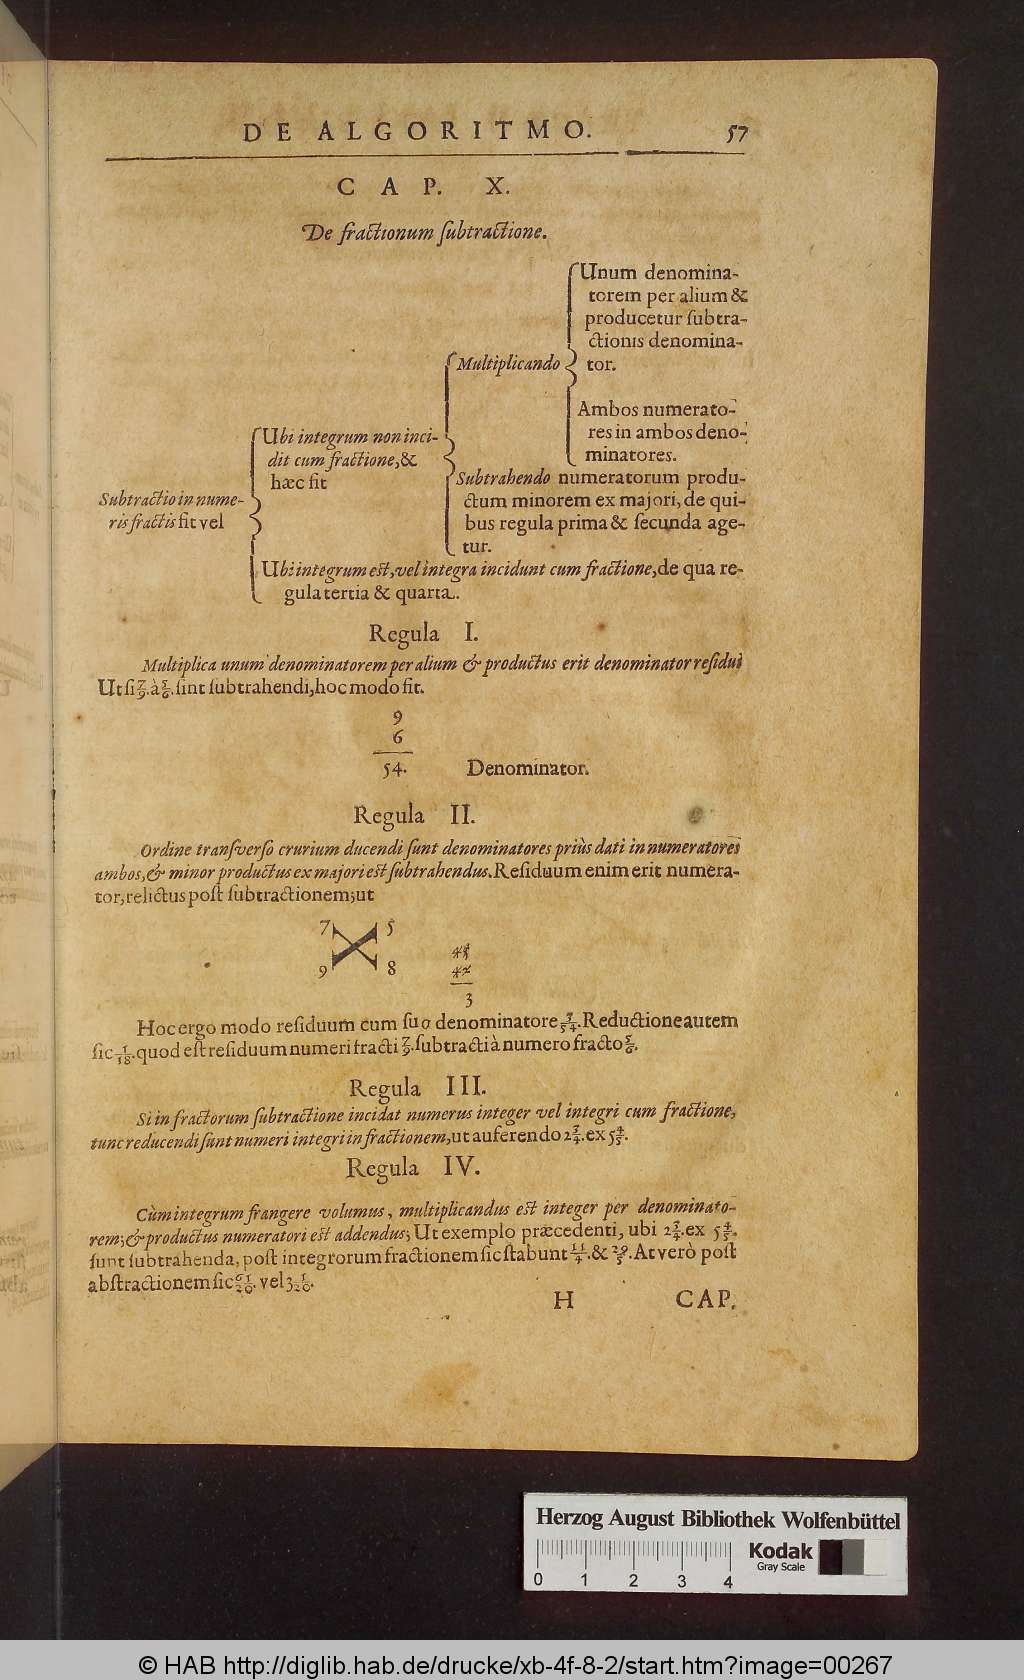 DE ALGORITMO. 57
CAP. X.
De fractionum ſubtractione.
Unum denomina-
torem per alium &
producetur ſubtra-
ctionis denomina-
Multiplicando tor.
Ambos numerato-
Ubi integrum non inci- res in ambos deno-
dit cum fractione, & minatores.
hæc fit Subtrahendo numeratorum produ-
Subtractio in nume- ctum minorem ex majori, de qui-
ris fractis fit vel bus regula prima & ſecunda age-
tur.
Ubi integrum est, vel integra incidunt cum fractione, de qua re-
gula tertia & quarta.
Regula I.
Multiplica unum denominatorem per alium & productus erit denominator reſidui
Ut ſi 7/9. à 5/6. ſint ſubtrahendi, hoc modo fit.
9
6
54. Denominator.
Regula II.
Ordine tranſverſo crurium ducendi ſunt denominatores priùs dati in numeratores
ambos, & minor productus ex majori est ſubtrahendus. Reſiduum enim erit numera-
tor, relictus poſt ſubtractionem; ut
7 5
9 8
45
42
3
Hoc ergo modo reſiduum cum ſuo denominatore 3/54. Reductione autem
ſic 1/18. quod eſt reſiduum numeri fracti 7/9. ſubtracti à numero fracto 5/6.
Regula III.
Si in fractorum ſubtractione incidat numerus integer vel integri cum fractione,
tunc reducendi ſunt numeri integri in fractionem, ut auferendo 2 3/4. ex 5 4/5.
Regula IV.
Cùm integrum frangere volumus, multiplicandus est integer per denominato-
rem; & productus numeratori est addendus; Ut exemplo præcedenti, ubi 2 3/4. ex 5 4/5.
ſunt ſubtrahenda, poſt integrorum fractionem ſic ſtabunt 11/4. & 29/5. At verò poſt
abſtractionem ſic 61/20. vel 3 1/20.
H CAP.
Herzog August Bibliothek Wolfenbüttel
Kodak
Gray Scale
0 1 2 3 4
© HAB http://diglib.hab.de/drucke/xb-4f-8-2/start.htm?image=00267